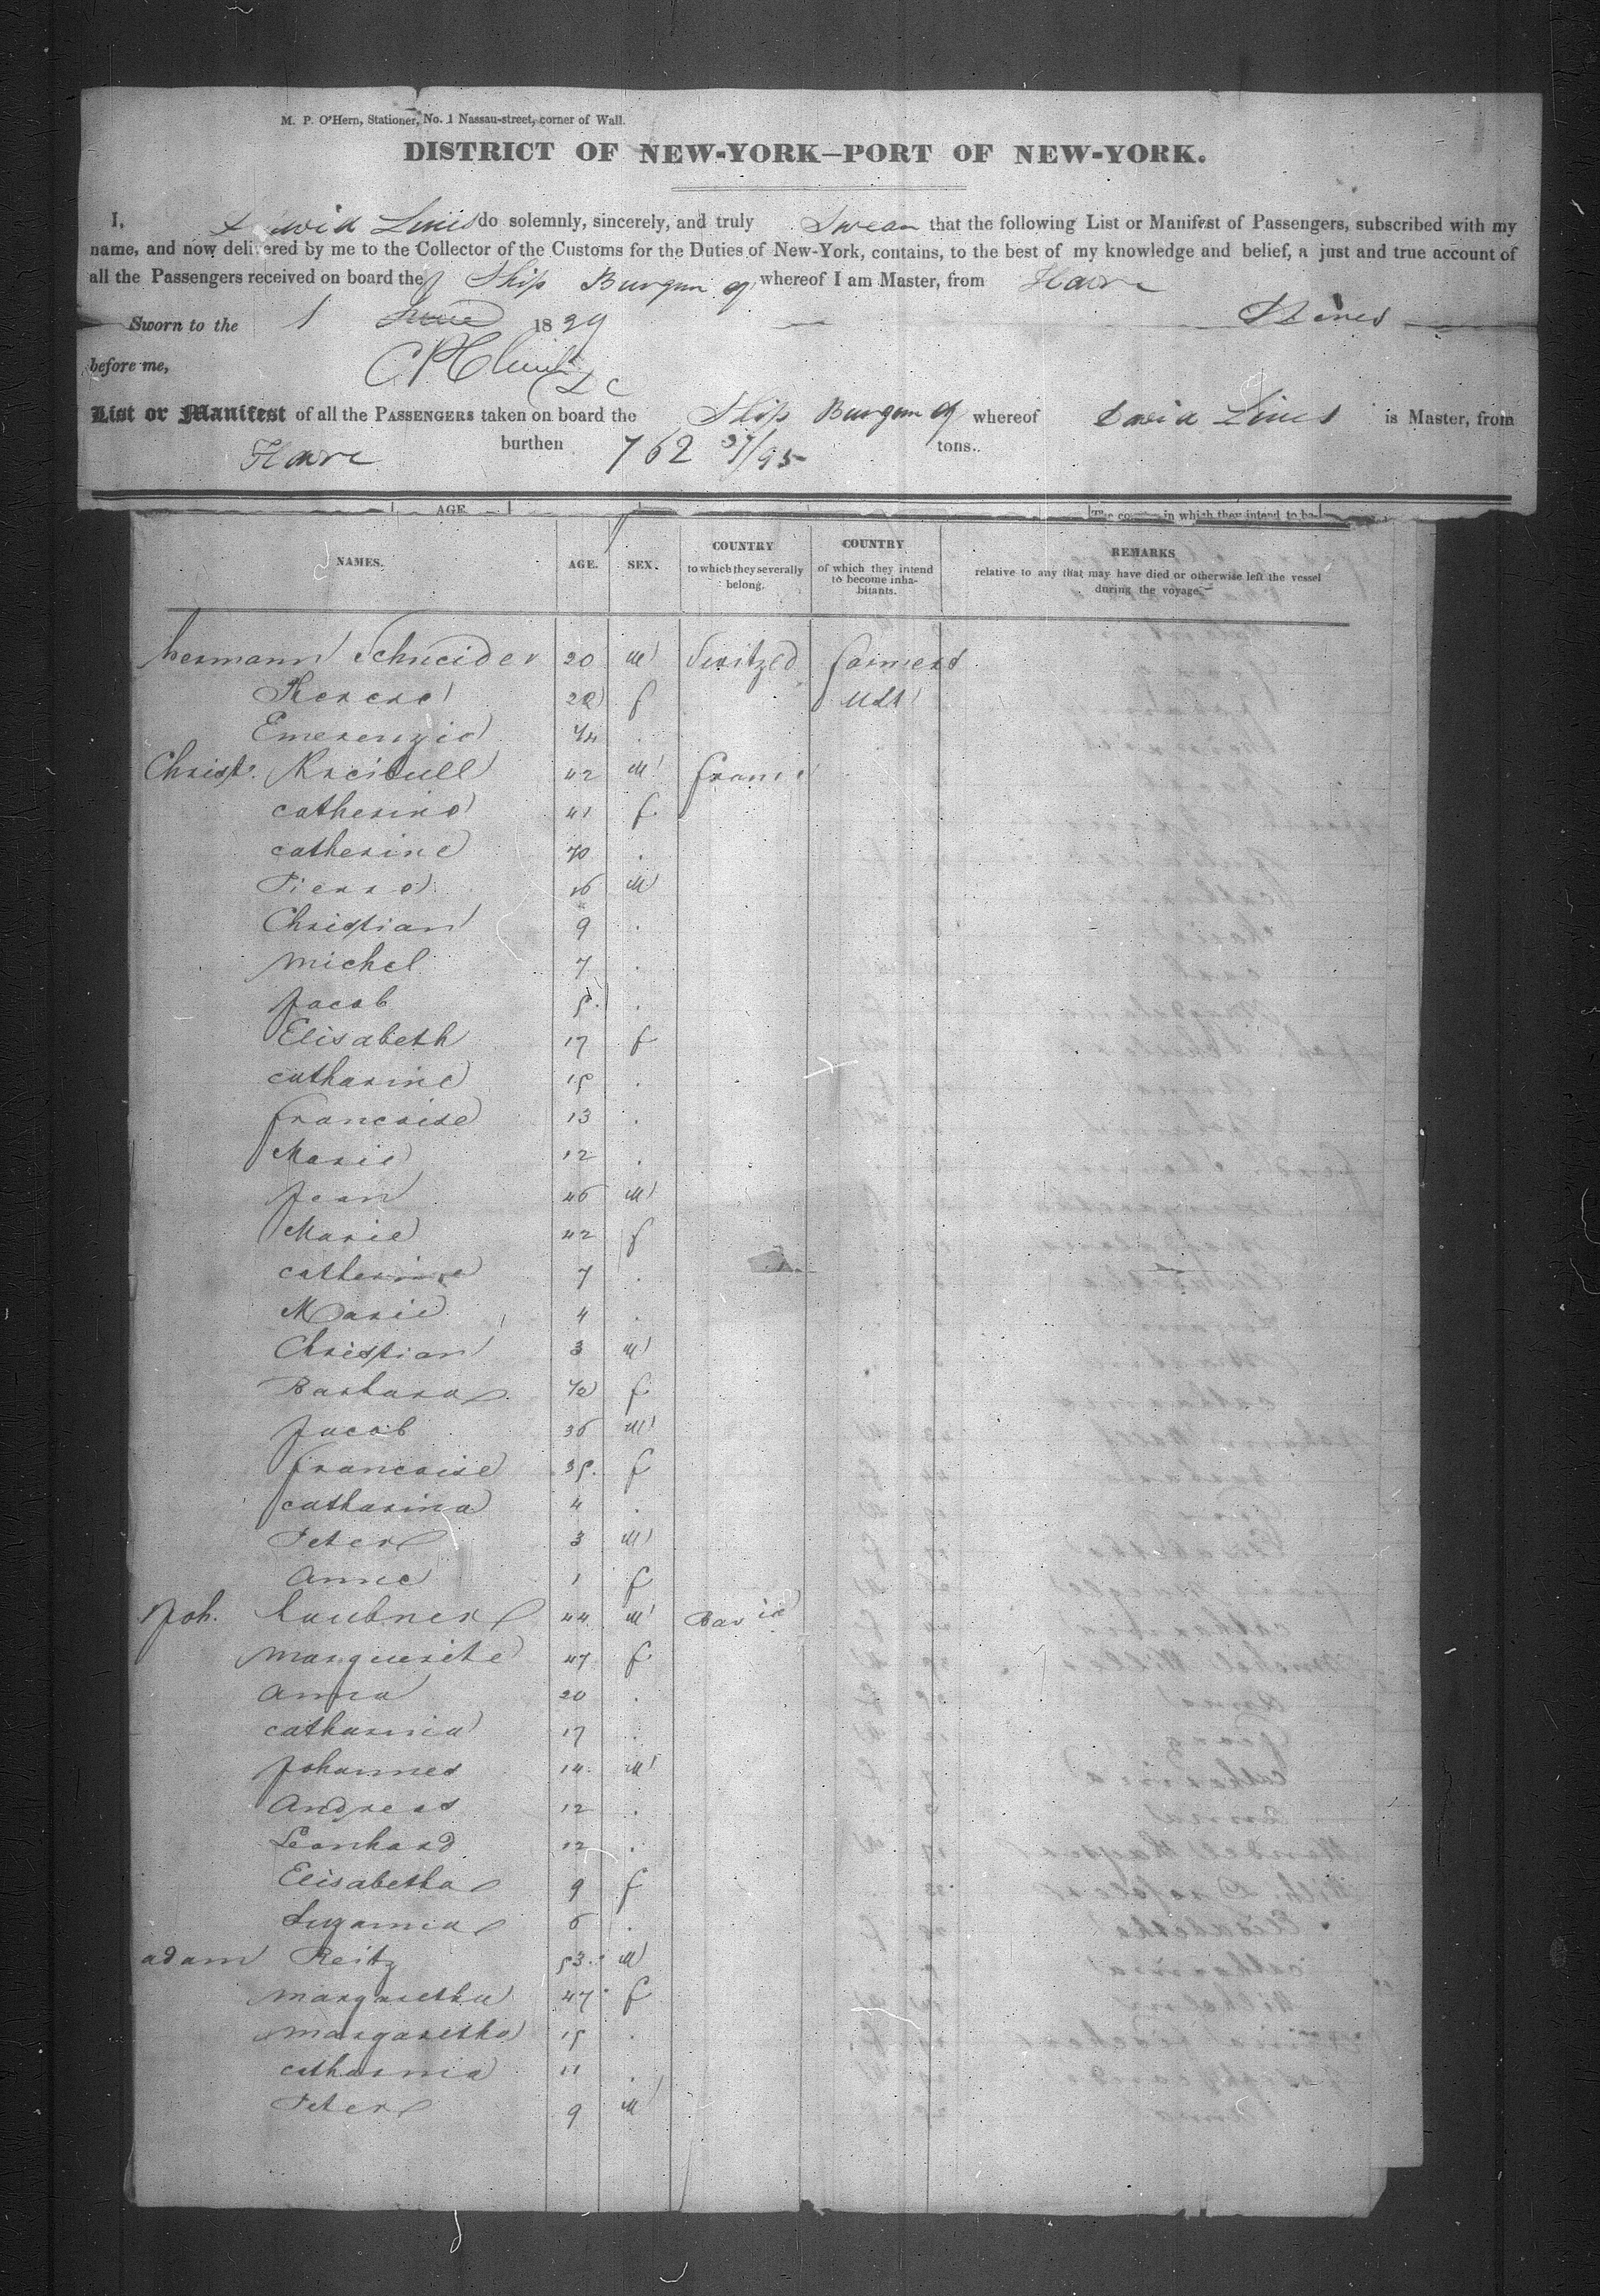 M. P. O'Hern, Stationer, No. 1 Nassau-street, corner of Wall.
DISTRICT OF NEW-YORK—PORT OF NEW-YORK.
I, David Lines do solemnly, sincerely, and truly Swear that the following List or Manifest of Passengers, subscribed with my
name, and now delivered by me to the Collector of the Customs for the Duties of New-York, contains, to the best of my knowledge and belief, a just and true account of
all the Passengers received on board the Ship Burgundy whereof I am Master, from Havre
Sworn to the 1 June 1839 D Lines
before me,
List or Manifest of all the PASSENGERS taken on board the Ship Burgundy whereof David Lines is Master, from
Havre burthen 762 37/95 tons.
AGE
in which they intend to be-
NAMES. AGE. SEX. COUNTRY to which they severally belong. COUNTRY of which they intend to become inhabitants. REMARKS relative to any that may have died or otherwise left the vessel during the voyage.
hermann Schneider 20 M Switzed farmers
Therese 20 f USA
Emerenzie
Christ. 42 M france
catherine 41 f
catherine 70 .
Pierre 16 M
Christian 9 .
Michel 7 .
Jacob 5 .
Elisabeth 17 f
catharine 15 .
francoise 13 .
Marie 12 .
Jean 46 M
Marie 42 f
catherine 7 .
Marie 4 .
Christian 3 M
Barbara 1/2 f
Jacob 36 M
francoise 35 f
catharina 4 .
Peter 3 M
Anne 1 f
Joh. Laubner 44 M Bavia
Marguerite 47 f
Anna 20 .
catharina 17 .
Johannes 14 M
Andreas 12 .
Leonhard 12 .
Elisabetha 9 f
Suzanna 6 .
adam Reitz 53 M
Margaretha 47 f
Margaretha 15 .
catharina 11 .
Peter 9 M